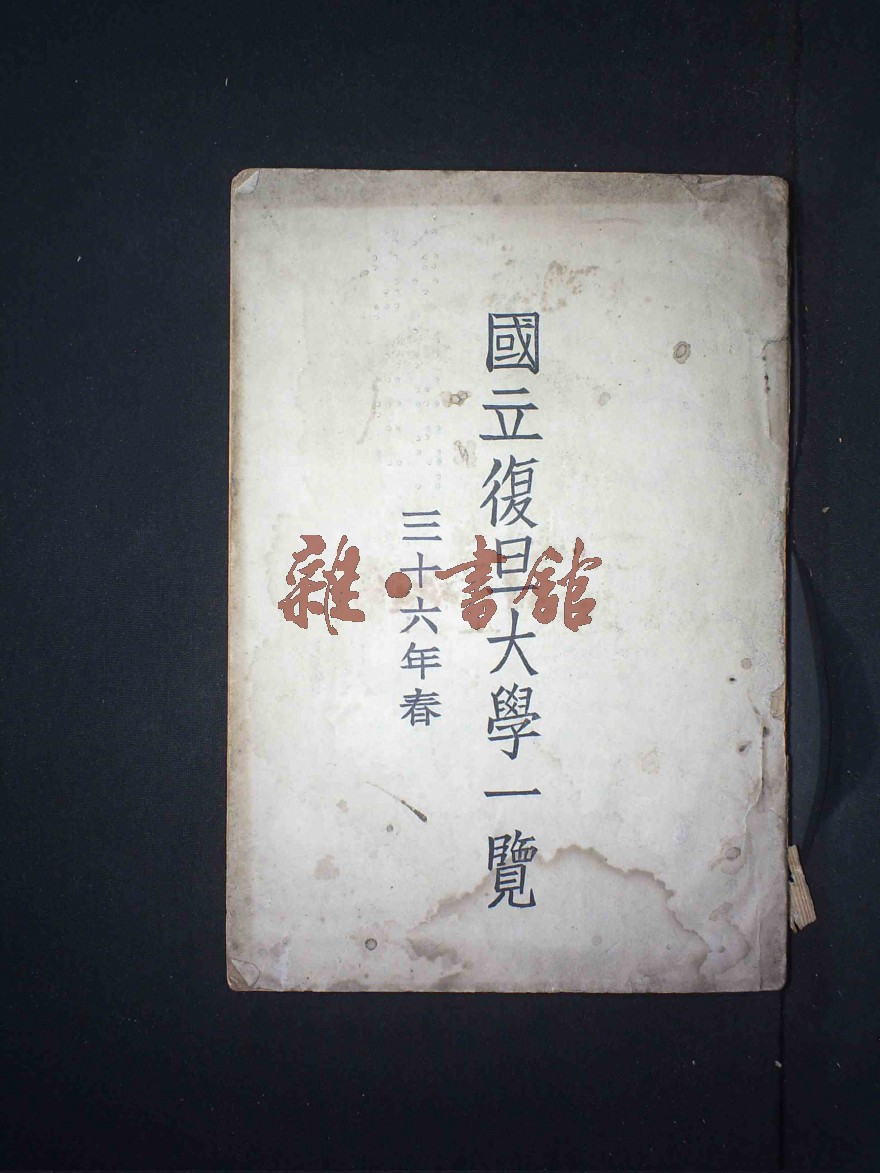 國立復旦大學一覽
三十六年春
雜·書館